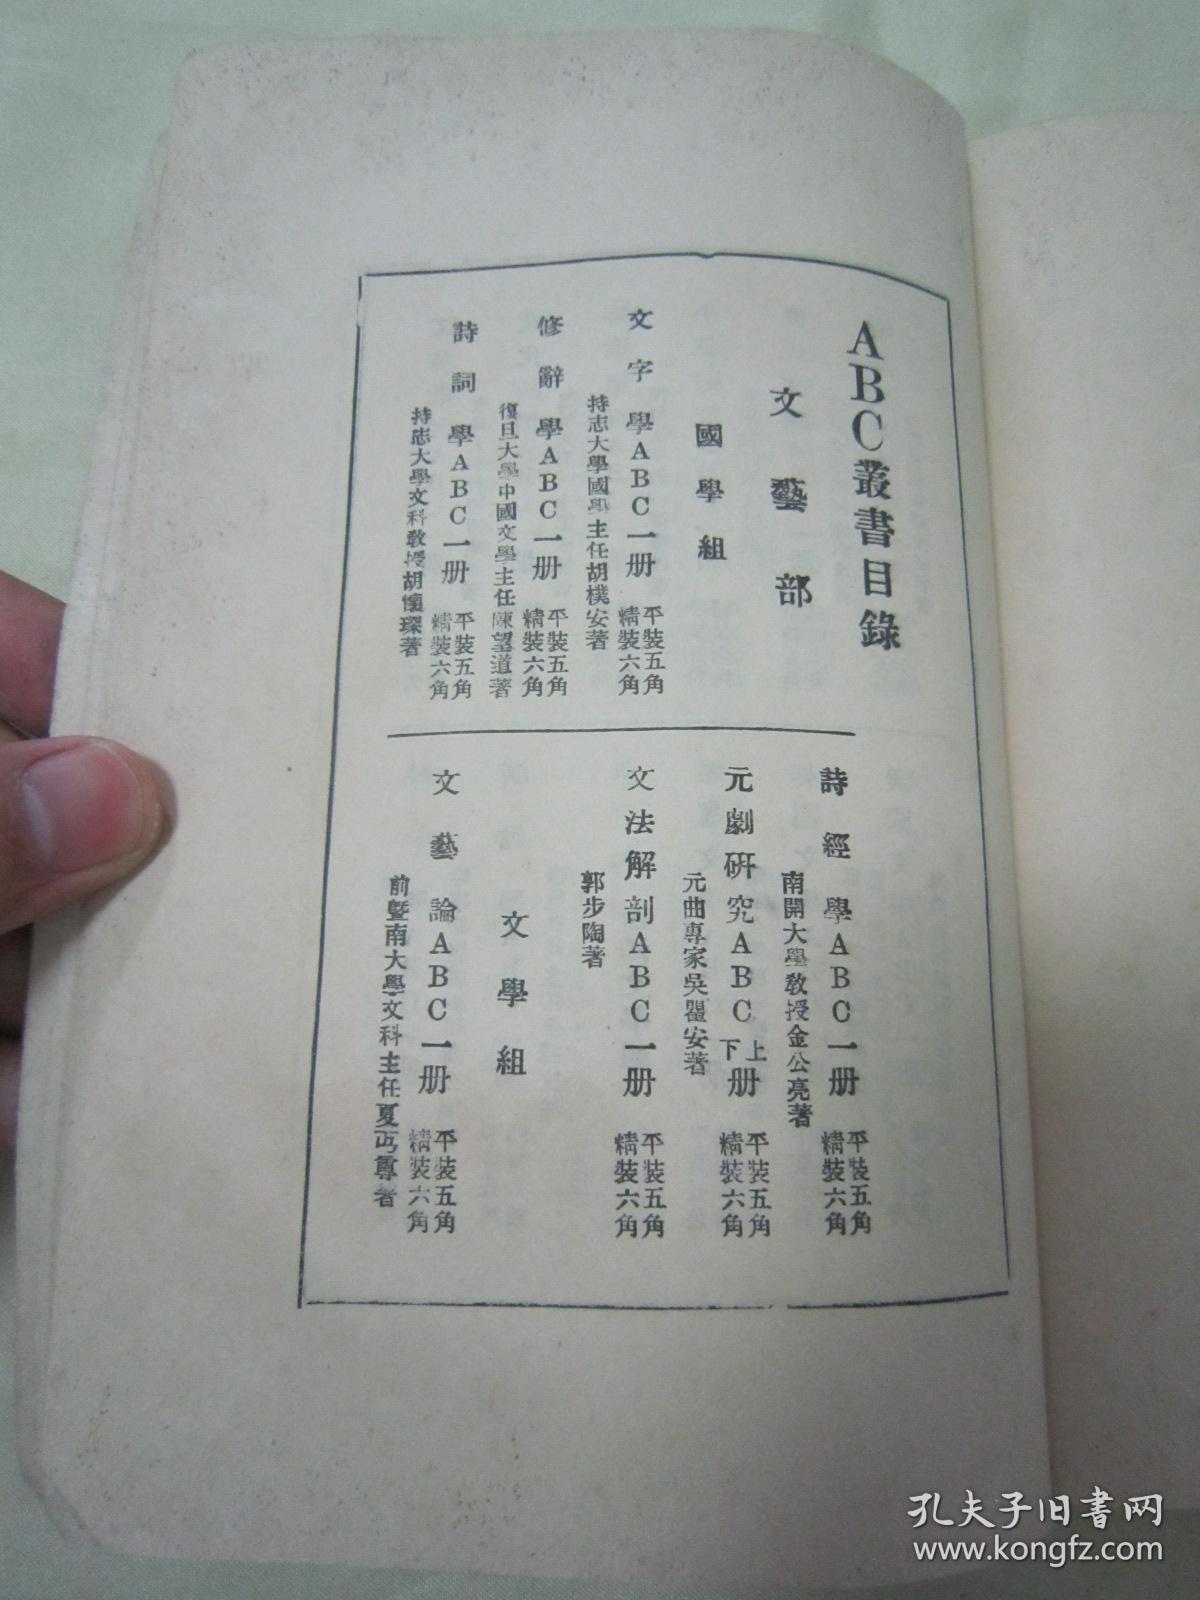 ABC叢書目錄
文藝部
國學組
文字學ABC一册 平裝五角 精裝六角
持志大學國學主任胡樸安著
修辭學ABC一册 平裝五角 精裝六角
復旦大學中國文學主任陳望道著
詩詞學ABC一册 平裝五角 精裝六角
持志大學文科教授胡懷琛著
詩經學ABC一册 平裝五角 精裝六角
南開大學教授金公亮著
元劇研究ABC上下册 平裝五角 精裝六角
元曲專家吳瞿安著
文法解剖ABC一册 平裝五角 精裝六角
郭步陶著
文學組
文藝論ABC一册 平裝五角 精裝六角
前暨南大學文科主任夏丏尊著
孔夫子旧书网
www.kongfz.com